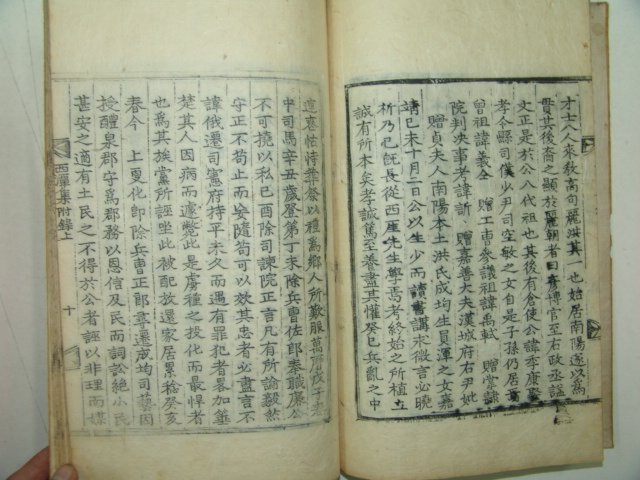 才士八人來敎高句麗洪其一也始居南陽遂以爲
貫其後裔之顯於麗朝者曰彦博官至右政丞謚
文正是於公八代祖也其後有倉使公諱季康事
孝令縣司僕少尹司空敏之女自是子孫仍居
曾祖諱義全 贈工曹參議祖諱禹軾 贈掌隷
院判決事考諱訢 贈嘉善大夫漢城府右尹妣
贈貞夫人南陽本土洪氏成均生員渾之女嘉
靖己未十月二日公以生少而讀書講求微言必曉
析乃已旣長從西厓先生學焉考終始之所植立
誠有所本矣孝誠篤至養盡其懽癸巳兵亂之中
連喪怙恃葬祭以禮爲鄕人所歎服萬曆戊子老
中司馬辛丑歲登第丁未除兵曹佐郎奉職廉公
不可撓以私己酉除司諫院正言凡有所論毅然
守正不苟止而安隨苟可以效其忠者必盡言不
諱俄遷司憲府持平未久而遇有罪犯者屠加箠
楚其人因病而斃此是虜種之投化而最悍者
爲其族黨所誣坐此被配放還家居累稔癸亥
春今 上更化卽除兵曹正郎尋遷成均司藝因
授醴泉郡守爲郡務以恩信及民而詞訟絶小民
甚安之適有土民之不得於公者誣以非理而媒
西厓集附錄上
十